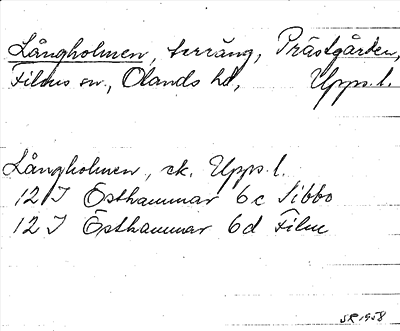 Långholmen, terräng, Prästgården,
Films sn., Olands hd, Upps. l.
Långholmen, ek. Upps. l.
12 I Östhammar 6c Sibbo
12 I Östhammar 6d Film
SR 1958